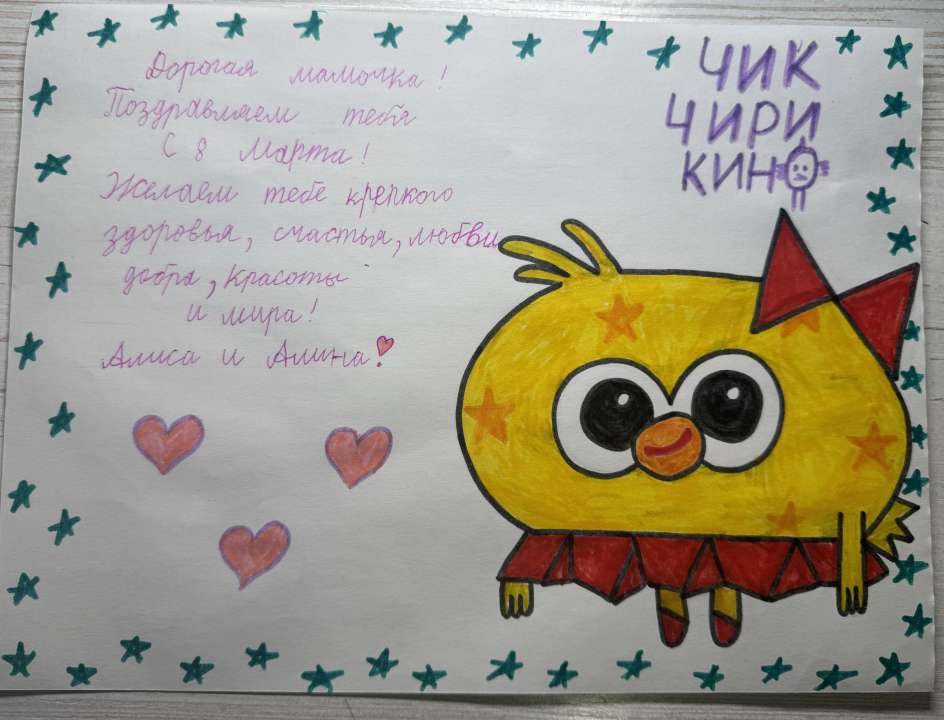 Дорогая мамочка!
Поздравляем тебя
С 8 Марта!
Желаем тебе крепкого
здоровья, счастья, любви
добра, красоты
и мира!
Алиса и Алина!
ЧИК
ЧИРИ
КИНО